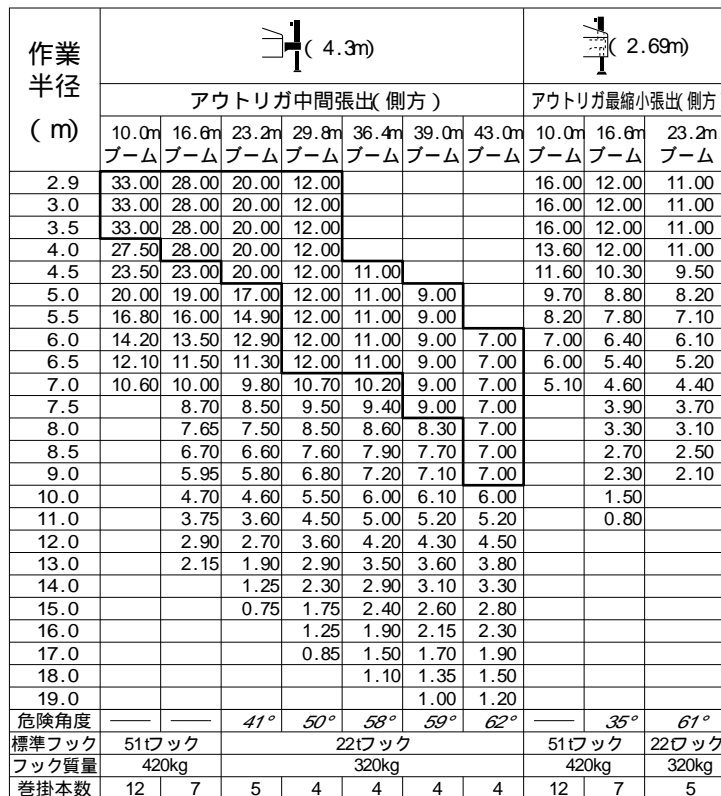 作業
半径
(m)
(4.3m) (2.69m)
アウトリガ中間張出(側方) アウトリガ最縮小張出(側方)
10.0m 16.6m 23.2m 29.8m 36.4m 39.0m 43.0m 10.0m 16.6m 23.2m
ブーム ブーム ブーム ブーム ブーム ブーム ブーム ブーム ブーム ブーム
2.9 33.00 28.00 20.00 12.00 16.00 12.00 11.00
3.0 33.00 28.00 20.00 12.00 16.00 12.00 11.00
3.5 33.00 28.00 20.00 12.00 16.00 12.00 11.00
4.0 27.50 28.00 20.00 12.00 13.60 12.00 11.00
4.5 23.50 23.00 20.00 12.00 11.00 11.60 10.30 9.50
5.0 20.00 19.00 17.00 12.00 11.00 9.00 9.70 8.80 8.20
5.5 16.80 16.00 14.90 12.00 11.00 9.00 8.20 7.80 7.10
6.0 14.20 13.50 12.90 12.00 11.00 9.00 7.00 7.00 6.40 6.10
6.5 12.10 11.50 11.30 12.00 11.00 9.00 7.00 6.00 5.40 5.20
7.0 10.60 10.00 9.80 10.70 10.20 9.00 7.00 5.10 4.60 4.40
7.5 8.70 8.50 9.50 9.40 9.00 7.00 3.90 3.70
8.0 7.65 7.50 8.50 8.60 8.30 7.00 3.30 3.10
8.5 6.70 6.60 7.60 7.90 7.70 7.00 2.70 2.50
9.0 5.95 5.80 6.80 7.20 7.10 7.00 2.30 2.10
10.0 4.70 4.60 5.50 6.00 6.10 6.00 1.50
11.0 3.75 3.60 4.50 5.00 5.20 5.20 0.80
12.0 2.90 2.70 3.60 4.20 4.30 4.50
13.0 2.15 1.90 2.90 3.50 3.60 3.80
14.0 1.25 2.30 2.90 3.10 3.30
15.0 0.75 1.75 2.40 2.60 2.80
16.0 1.25 1.90 2.15 2.30
17.0 0.85 1.50 1.70 1.90
18.0 1.10 1.35 1.50
19.0 1.00 1.20
危険角度 — — 41° 50° 58° 59° 62° — 35° 61°
標準フック 51tフック 22tフック 51tフック 22tフック
フック質量 420kg 320kg 420kg 320kg
巻掛本数 12 7 5 4 4 4 4 12 7 5